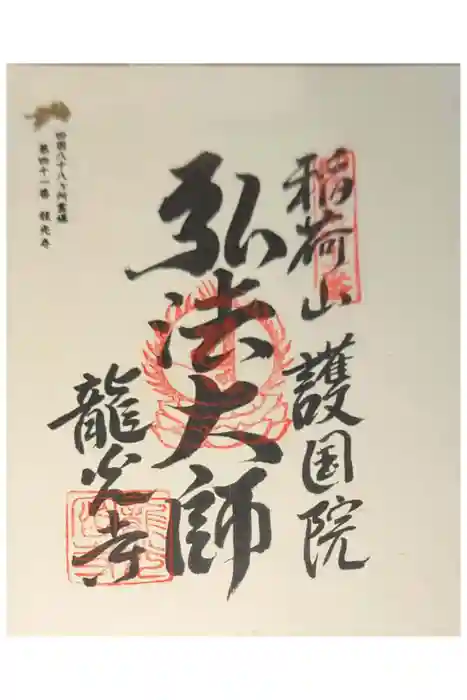 稲荷山 護国院
弘法大師
龍光寺
四国八十八ヶ所霊場
第四十一番 龍光寺